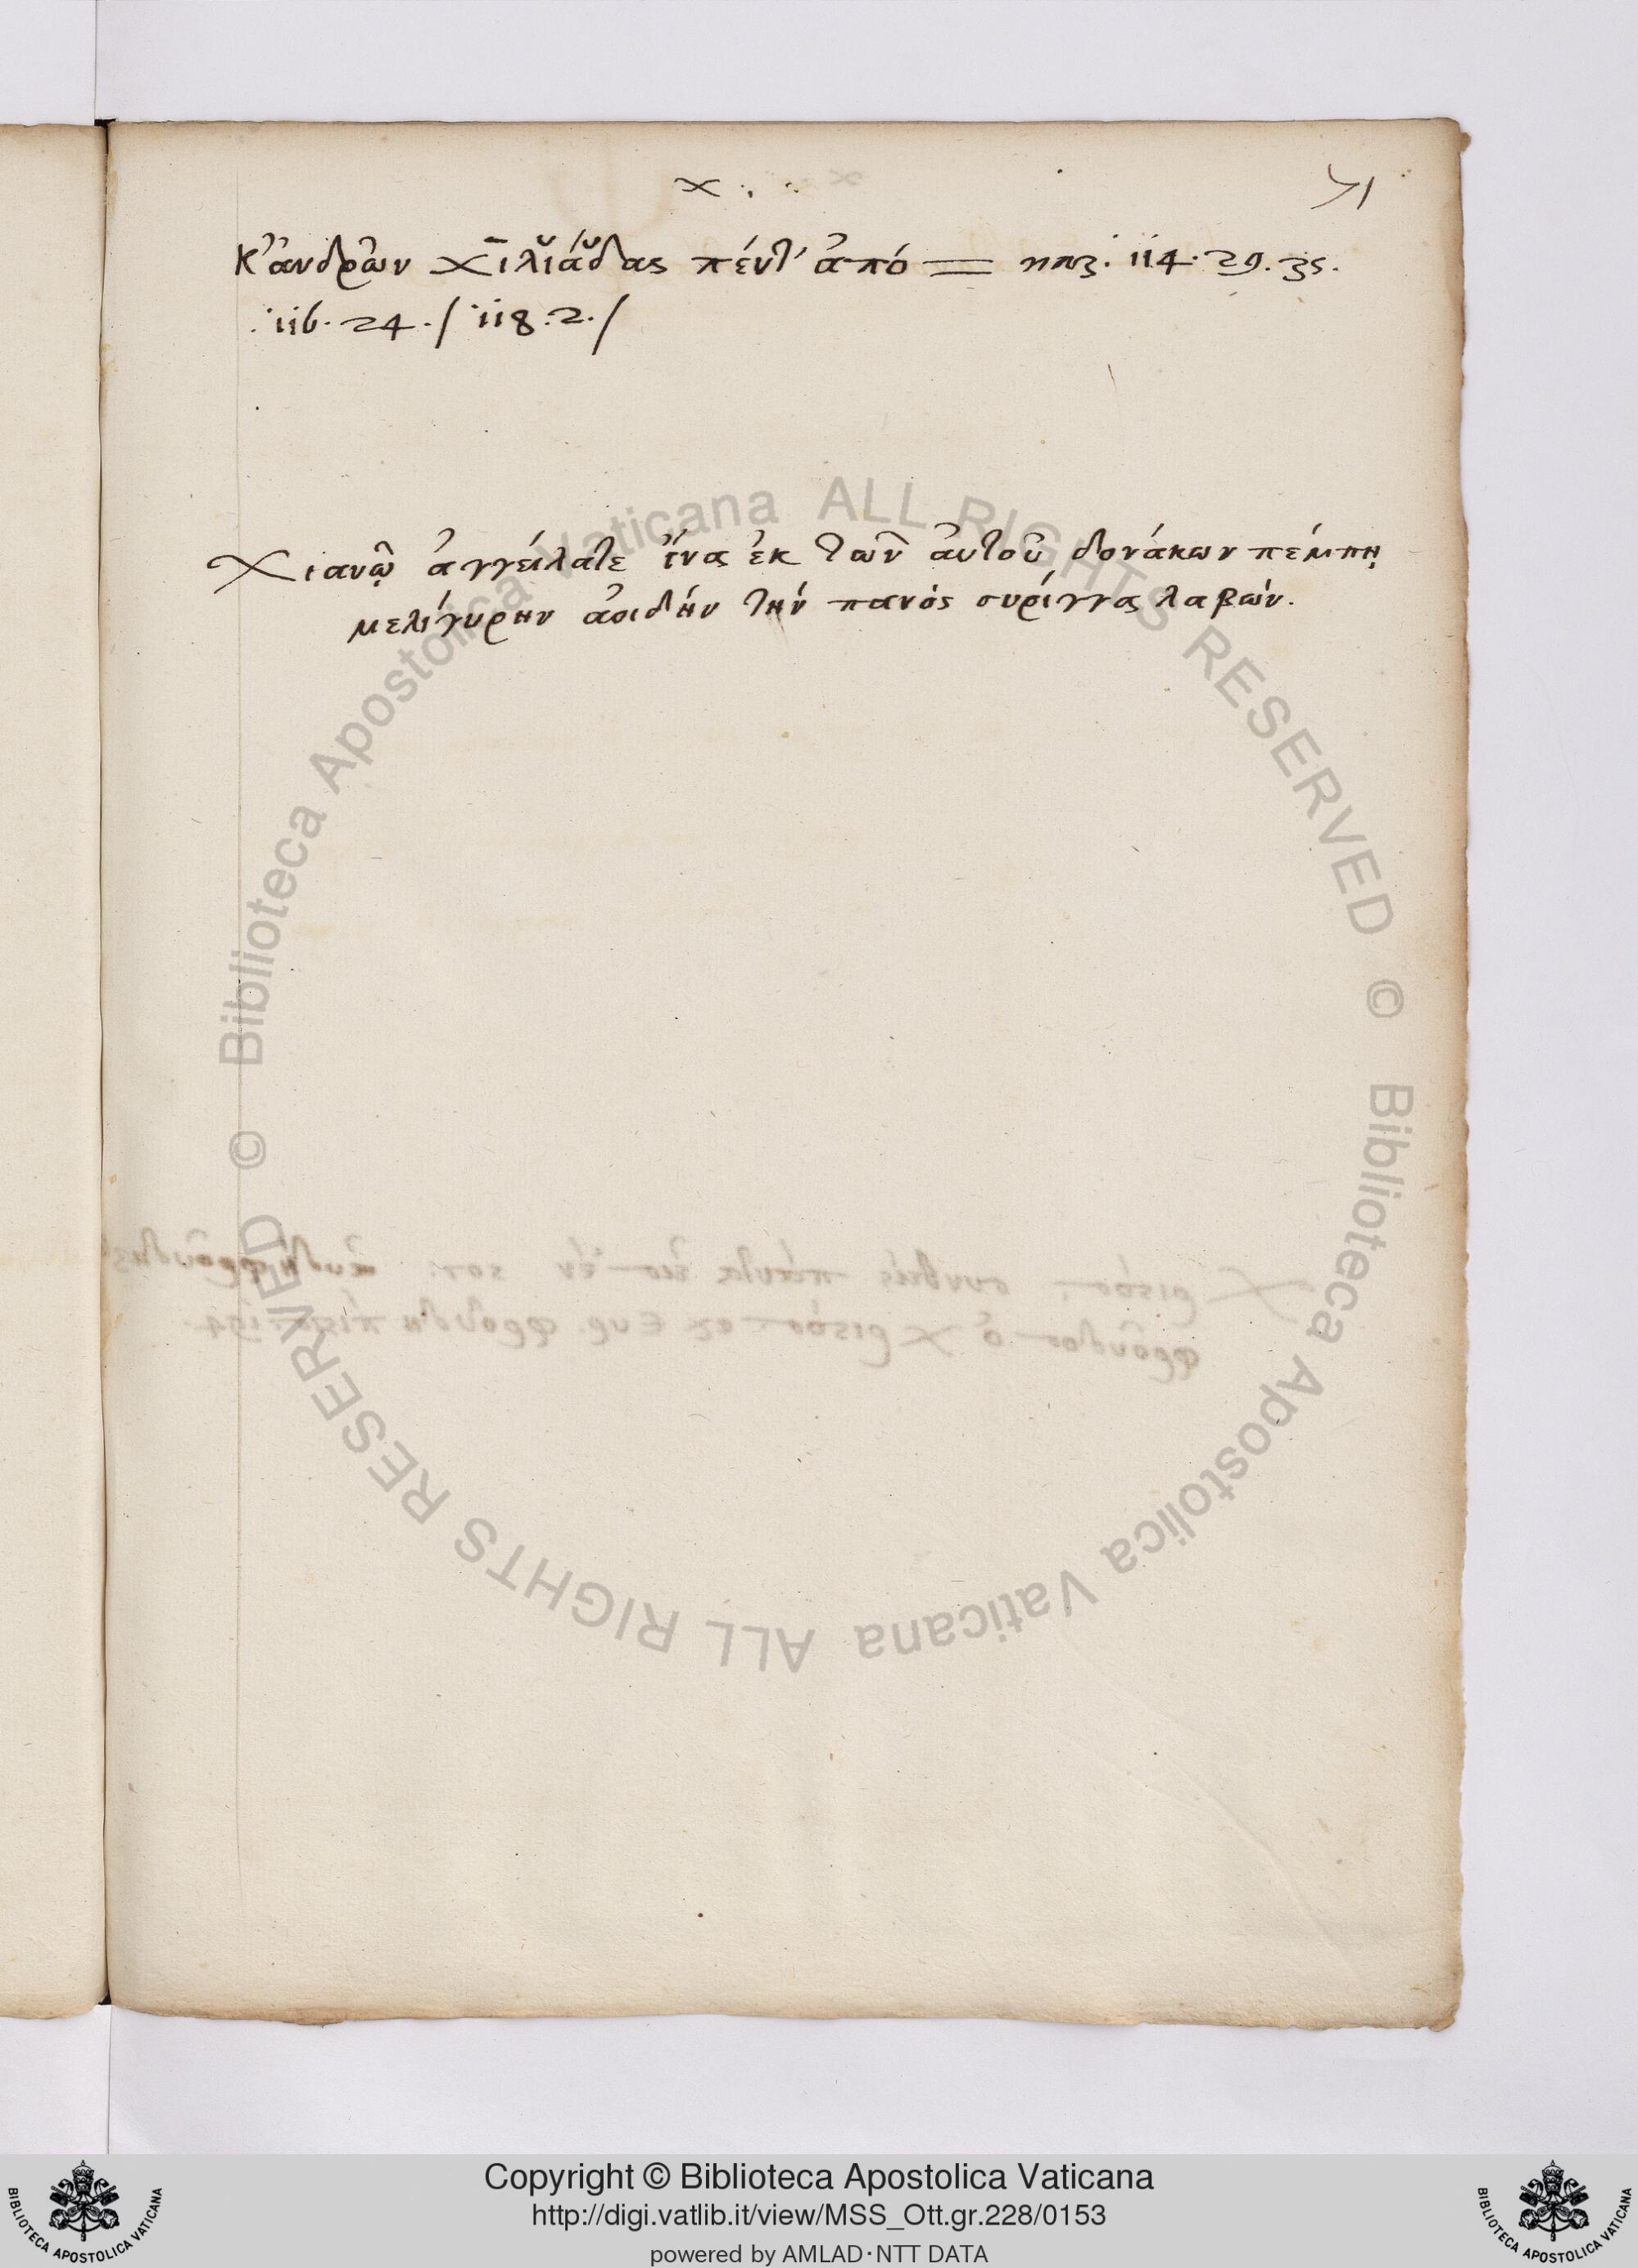 χ ∴
71
κ' ἀνδρῶν χῑλῐάδᾰς πέντ' ἀπό = 114. 29. 35.
116. 24. / 118. 2. /
Χιανῷ ἀγγείλατε ἵνα ἐκ τῶν αὐτοῦ δονάκων πέμπῃ
μελίγυρην ἀοιδήν τήν πανός συρίγγας λαβών.
© Biblioteca Apostolica Vaticana ALL RIGHTS RESERVED
© Biblioteca Apostolica Vaticana ALL RIGHTS RESERVED
Copyright © Biblioteca Apostolica Vaticana
http://digi.vatlib.it/view/MSS_Ott.gr.228/0153
powered by AMLAD·NTT DATA
BIBLIOTECA APOSTOLICA VATICANA
BIBLIOTECA APOSTOLICA VATICANA